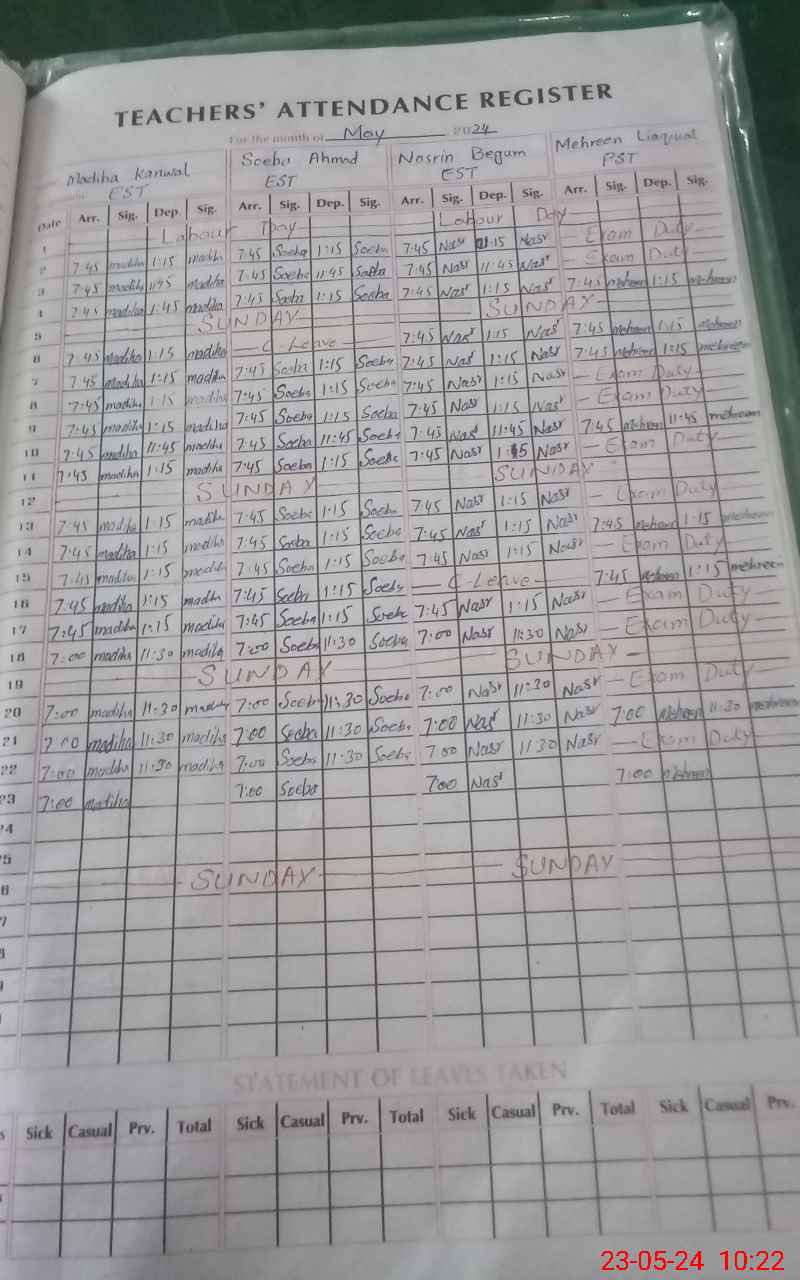 TEACHERS' ATTENDANCE REGISTER
For the month of May 2024
Madiha Kanwal EST Soeba Ahmad EST Nasrin Begum EST Mehreen Liaquat PST
Date Arr. Sig. Dep. Sig. Arr. Sig. Dep. Sig. Arr. Sig. Dep. Sig. Arr. Sig. Dep. Sig.
1 Labour Day Labour Day
2 7:45 madiha 1:15 madiha 7:45 Soeba 1:15 Soeba 7:45 Nasr 1:15 Nasr Exam Duty
3 7:45 madiha 11:45 madiha 7:45 Soeba 11:45 Soeba 7:45 Nasr 11:45 Nasr Exam Duty
4 7:45 madiha 1:45 madiha 7:45 Soeba 1:15 Soeba 7:45 Nasr 1:15 Nasr 7:45 Mehreen 1:15 mehreen
5 SUNDAY SUNDAY
6 7:45 madiha 1:15 madiha C Leave 7:45 Nasr 1:15 Nasr 7:45 Mehreen 1:15 Mehreen
7 7:45 madiha 1:15 madiha 7:45 Soeba 1:15 Soeba 7:45 Nasr 1:15 Nasr 7:45 Mehreen 1:15 mehreen
8 7:45 madiha 1:15 madiha 7:45 Soeba 1:15 Soeba 7:45 Nasr 1:15 Nasr Exam Duty
9 7:45 madiha 1:15 madiha 7:45 Soeba 1:15 Soeba 7:45 Nasr 1:15 Nasr Exam Duty
10 7:45 madiha 11:45 madiha 7:45 Soeba 11:45 Soeba 7:45 Nasr 11:45 Nasr 7:45 Mehreen 11:45 mehreen
11 7:45 madiha 1:15 madiha 7:45 Soeba 1:15 Soeba 7:45 Nasr Nasr Exam Duty
12 SUNDAY SUNDAY
13 7:45 madiha 1:15 madiha 7:45 Soeba 1:15 Soeba 7:45 Nasr 1:15 Nasr Exam Duty
14 7:45 madiha 1:15 madiha 7:45 Soeba 1:15 Soeba 7:45 Nasr 1:15 Nasr 7:45 Mehreen 1:15 mehreen
15 7:45 madiha 1:15 madiha 7:45 Soeba 1:15 Soeba 7:45 Nasr 1:15 Nasr Exam Duty
16 7:45 madiha 1:15 madiha 7:45 Soeba 1:15 Soeba C-Leave 7:45 Mehreen 1:15 mehreen
17 7:45 madiha 1:15 madiha 7:45 Soeba 1:15 Soeba 7:45 Nasr 1:15 Nasr Exam Duty
18 7:00 madiha 11:30 madiha 7:00 Soeba 11:30 Soeba 7:00 Nasr 11:30 Nasr Exam Duty
19 SUNDAY SUNDAY
20 7:00 madiha 11:30 madiha 7:00 Soeba 11:30 Soeba 7:00 Nasr 11:30 Nasr Exam Duty
21 7:00 madiha 11:30 madiha 7:00 Soeba 11:30 Soeba 7:00 Nasr 11:30 Nasr 7:00 Mehreen 11:30 mehreen
22 7:00 madiha 11:30 madiha 7:00 Soeba 11:30 Soeba 7:00 Nasr 11:30 Nasr Exam Duty
23 7:00 madiha 7:00 Soeba 7:00 Nasr 7:00 Mehreen
4
5
6 SUNDAY SUNDAY
7
STATEMENT OF LEAVES TAKEN
Sick Casual Prv. Total Sick Casual Prv. Total Sick Casual Prv. Total Sick Casual Prv.
23-05-24 10:22